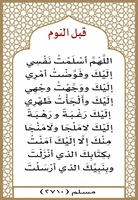 قبل النوم
اللَّهُمَّ أَسْلَمْتُ نَفْسِي
إِلَيْكَ وَفَوَّضْتُ أَمْرِي
إِلَيْكَ وَوَجَّهْتُ وَجْهِي
إِلَيْكَ وَأَلْجَأْتُ ظَهْرِي
إِلَيْكَ رَغْبَةً وَرَهْبَةً
إِلَيْكَ لَامَلْجَأَ وَلَامَنْجَا
مِنْكَ إِلَّا إِلَيْكَ آمَنْتُ
بِكِتَابِكَ الَّذِي أَنْزَلْتَ
وَبِنَبِيِّكَ الَّذِي أَرْسَلْتَ
مسلم (٢٧١٠)